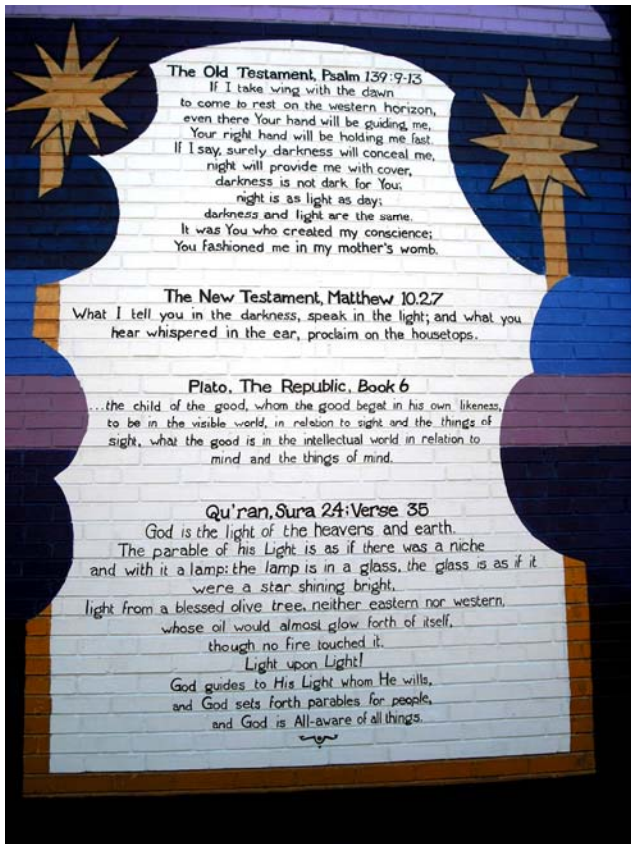 The Old Testament, Psalm 139:9-13
If I take wing with the dawn
to come to rest on the western horizon,
even there Your hand will be guiding me,
Your right hand will be holding me fast.
If I say, surely darkness will conceal me,
night will provide me with cover,
darkness is not dark for You;
night is as light as day;
darkness and light are the same.
It was You who created my conscience;
You fashioned me in my mother's womb.
The New Testament, Matthew 10.2,7
What I tell you in the darkness, speak in the light; and what you
hear whispered in the ear, proclaim on the housetops.
Plato, The Republic, Book 6
...the child of the good, whom the good begat in his own likeness,
to be in the visible world, in relation to sight and the things of
sight, what the good is in the intellectual world in relation to
mind and the things of mind.
Qu'ran, Sura 24:Verse 35
God is the light of the heavens and earth.
The parable of his Light is as if there was a niche
and with it a lamp: the lamp is in a glass, the glass is as if it
were a star shining bright,
light from a blessed olive tree, neither eastern nor western,
whose oil would almost glow forth of itself,
though no fire touched it.
Light upon Light!
God guides to His Light whom He wills,
and God sets forth parables for people,
and God is All-aware of all things.